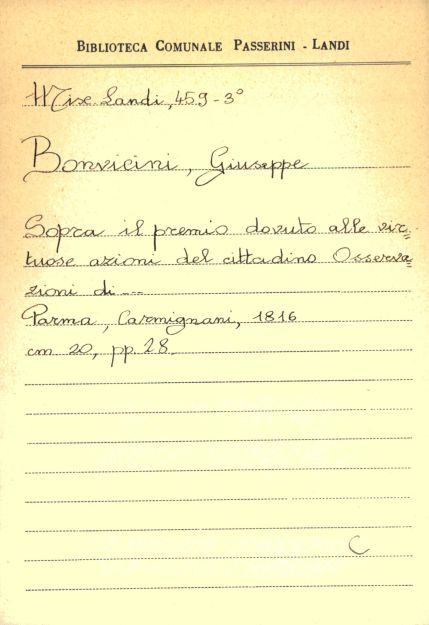 BIBLIOTECA COMUNALE PASSERINI - LANDI
Misc. Landi, 459-3°
Bonvicini, Giuseppe
Sopra il premio dovuto alle vir=
tuose azioni del cittadino Osserva=
zioni di ---
Parma, Carmignani, 1816
cm 20, pp. 28.
C